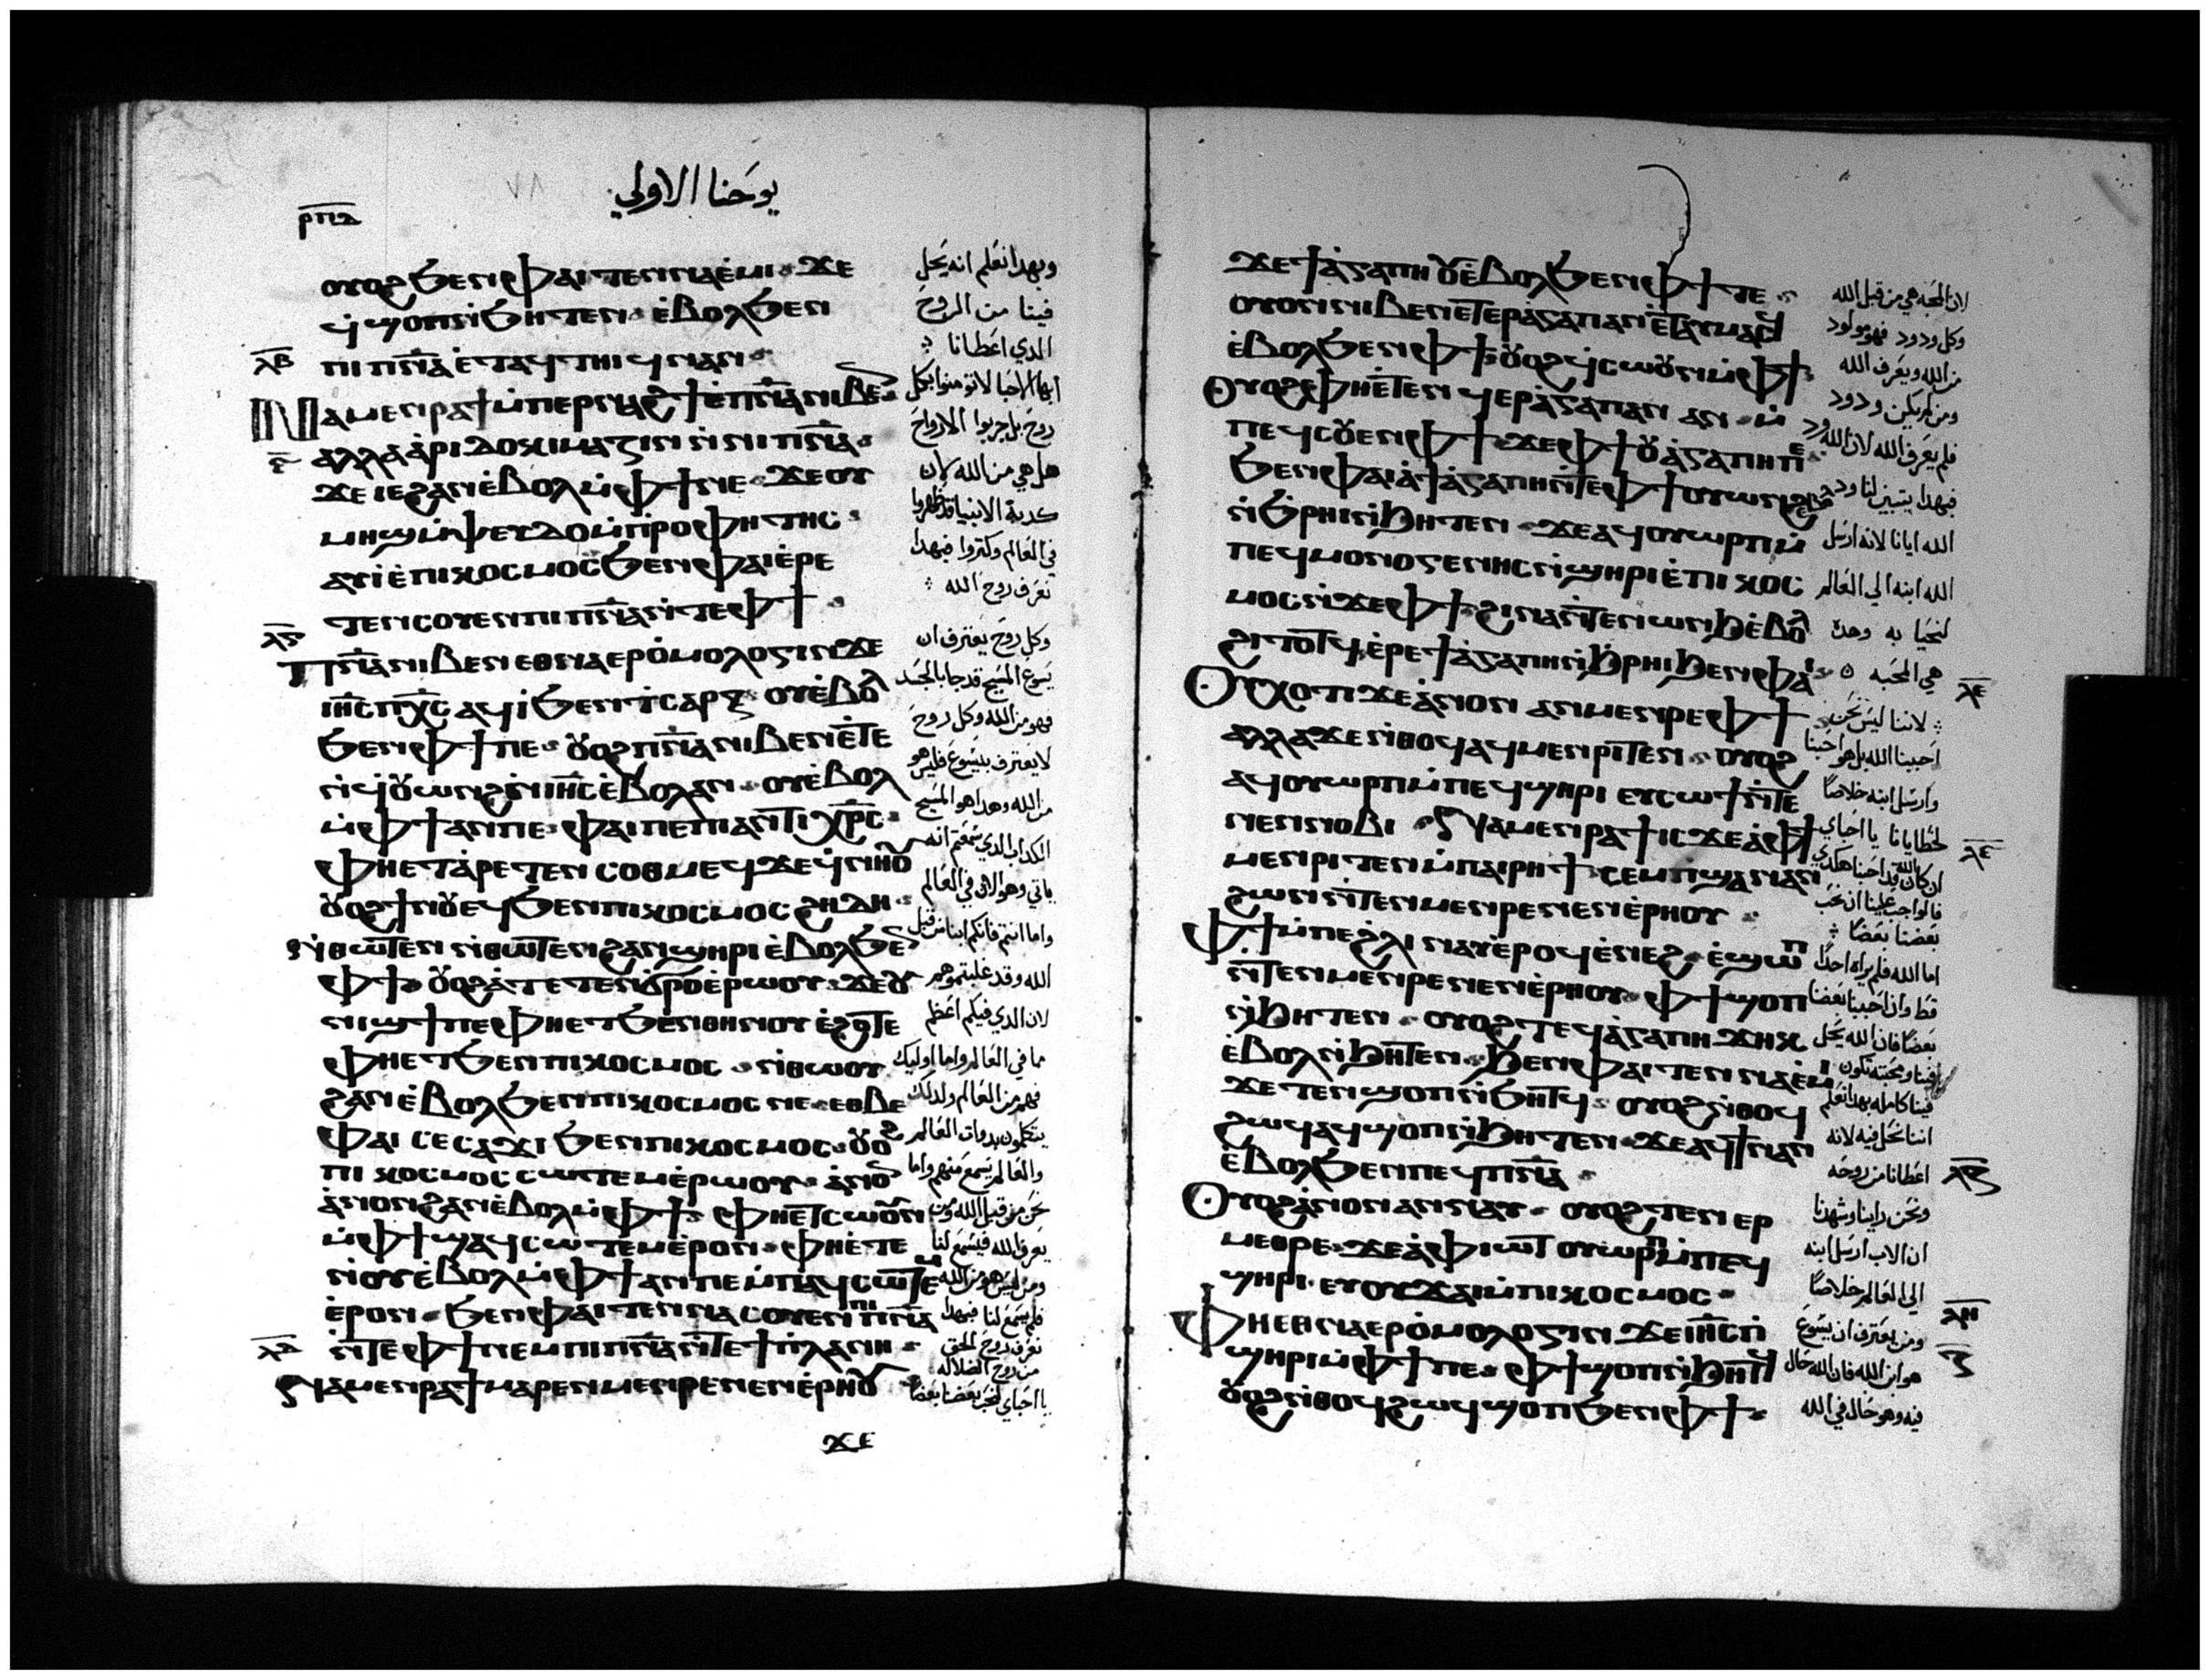 يوحنا الاولي
ⲣⲡⲇ
ⲟⲩⲟϩ ϧⲉⲛ ⲫⲁⲓ ⲧⲉⲛⲛⲁⲉ̀ⲙⲓ ϫⲉ
ϥϣⲟⲡ ⲛ̀ϧⲏⲧⲉⲛ ⲉ̀ⲃⲟⲗ ϧⲉⲛ
ⲡⲓⲡ̅ⲛ̅ⲁ̅ ⲉ̀ⲧⲁϥⲧⲏⲓϥ ⲛⲁⲛ
ⲗ̅ⲃ̅
ⲛⲁⲙⲉⲛⲣⲁϯ ⲙ̀ⲡⲉⲣⲛⲁϩϯ ⲉ̀ⲡ̅ⲛ̅ⲁ̅ ⲛⲓⲃⲉⲛ
ⲁⲗⲗⲁ ⲁ̀ⲣⲓⲇⲟⲕⲓⲙⲁⲍⲓⲛ ⲛ̀ⲛⲓⲡ̅ⲛ̅ⲁ̅
ϫⲉ ⲓⲉ ϩⲁⲛⲉ̀ⲃⲟⲗ ⲙ̀ⲫϯ ⲛⲉ ϫⲉ ⲟⲩ
ⲙⲏϣ ⲙ̀ⲯⲉⲩⲇⲟⲙ̀ⲡⲣⲟⲫⲏⲧⲏⲥ
ⲁⲩⲓ̀ ⲉ̀ⲡⲓⲕⲟⲥⲙⲟⲥ ϧⲉⲛ ⲫⲁⲓ ⲉ̀ⲣⲉ
ⲧⲉⲛⲥⲟⲩⲉⲛ ⲡⲓⲡ̅ⲛ̅ⲁ̅ ⲛ̀ⲧⲉ ⲫϯ
ⲡ̅ⲛ̅ⲁ̅ ⲛⲓⲃⲉⲛ ⲉⲑⲛⲁⲉⲣⲟ̀ⲙⲟⲗⲟⲅⲓⲛ ϫⲉ
ⲓⲏ̅ⲥ̅ ⲡⲭ̅ⲥ̅ ⲁϥⲓ̀ ϧⲉⲛ ⲧ̀ⲥⲁⲣⲝ ⲟⲩⲉ̀ⲃⲟⲗ
ϧⲉⲛ ⲫϯ ⲡⲉ ⲟⲩⲟϩ ⲡ̅ⲛ̅ⲁ̅ ⲛⲓⲃⲉⲛ ⲉ̀ⲧⲉ
ⲛ̀ϥⲟⲩⲱⲛϩ ⲛ̀ⲓⲏ̅ⲥ̅ ⲉ̀ⲃⲟⲗ ⲁⲛ ⲟⲩⲉ̀ⲃⲟⲗ
ⲙ̀ⲫϯ ⲁⲛ ⲡⲉ ⲫⲁⲓ ⲡⲉ ⲡⲓⲁⲛⲧⲓⲭⲣⲥ
ⲫⲏⲉⲧⲁ̀ⲣⲉⲧⲉⲛⲥⲟⲑⲙⲉϥ ϫⲉ ϥ̀ⲛⲏⲟⲩ
ⲟⲩⲟϩ ϯⲛⲟⲩ ⲉϥϧⲉⲛ ⲡⲓⲕⲟⲥⲙⲟⲥ ϩⲏⲇⲏ
ⲛ̀ⲑⲱⲧⲉⲛ ⲛ̀ⲑⲱⲧⲉⲛ ϩⲁⲛϣⲏⲣⲓ ⲉ̀ⲃⲟⲗ ϧⲉⲛ
ⲫϯ ⲟⲩⲟϩ ⲁ̀ⲧⲉⲧⲉⲛϭⲣⲟ ⲉ̀ⲣⲱⲟⲩ ϫⲉ ⲟⲩ
ⲛⲓϣϯ ⲡⲉ ⲫⲏⲉⲧϧⲉⲛ ⲑⲏⲛⲟⲩ ⲉ̀ϩⲟⲧⲉ
ⲫⲏⲉⲧϧⲉⲛ ⲡⲓⲕⲟⲥⲙⲟⲥ ⲛ̀ⲑⲱⲟⲩ
ϩⲁⲛⲉ̀ⲃⲟⲗ ϧⲉⲛ ⲡⲓⲕⲟⲥⲙⲟⲥ ⲛⲉ ⲉⲑⲃⲉ
ⲫⲁⲓ ⲥⲉⲥⲁϫⲓ ϧⲉⲛ ⲡⲓⲕⲟⲥⲙⲟⲥ ⲟⲩⲟϩ
ⲡⲓⲕⲟⲥⲙⲟⲥ ⲥⲱⲧⲉⲙ ⲉ̀ⲣⲱⲟⲩ ⲁ̀ⲛⲟⲛ
ⲁ̀ⲛⲟⲛ ϩⲁⲛⲉ̀ⲃⲟⲗ ⲙ̀ⲫϯ ⲫⲏⲉⲧⲥⲱⲟⲩⲛ
ⲙ̀ⲫϯ ϣⲁϥⲥⲱⲧⲉⲙ ⲉ̀ⲣⲟⲛ ⲫⲏⲉ̀ⲧⲉ
ⲛ̀ⲟⲩⲉ̀ⲃⲟⲗ ⲙ̀ⲫϯ ⲁⲛ ⲡⲉ ⲙ̀ⲡⲁϥⲥⲱⲧⲉⲙ
ⲉ̀ⲣⲟⲛ ϧⲉⲛ ⲫⲁⲓ ⲧⲉⲛⲛⲁⲥⲟⲩⲉⲛ ⲡⲓⲡ̅ⲛ̅ⲁ̅
ⲛ̀ⲧⲉ ⲫϯ ⲛⲉⲙ ⲡⲓⲡ̅ⲛ̅ⲁ̅ ⲛ̀ⲧⲉ ϯⲡ̀ⲗⲁⲛⲏ
ⲗ̅ⲇ̅
ⲛⲁⲙⲉⲛⲣⲁϯ ⲙⲁⲣⲉⲛⲙⲉⲛⲣⲉ ⲛⲉⲛⲉ̀ⲣⲏⲟⲩ
ϫⲉ
وبهدا نعلم انه يحل
فينا من الروح
الدي اعطانا
ايها الاحبا لا تومنوا بكل
روح بل جربوا الارواح
هل هي من الله لان
كدبة الانبيا قد ظهروا
في العالم وكتروا فبهدا
نعرف روح الله
وكل روح يعترف ان
يسوع المسيح قد جا بالجسد
فهو من الله وكل روح
لا يعترف بيسوع فليس هو
من الله وهدا هو المسيح
الكداب الدي سمعتم انه
ياتي وهو الان في العالم
واما انتم فانكم ابنا من قبل
الله وقد غلبتموهم
لان الدي فيكم اعظم
مما في العالم واما اوليك
فهم من العالم ولدلك
يتكلمون بدوات العالم
والعالم يسمع منهم واما
نحن من قبل الله ومن
يعرف الله فيسمع لنا
ومن ليس هو من الله
فلم يسمع لنا فبهدا
نعرف روح الحق
من روح الضلاله
يا احباي لنحب بعضنا بعضا
ϫⲉ ϯⲁ̀ⲅⲁⲡⲏ ⲟⲩⲉ̀ⲃⲟⲗ ϧⲉⲛ ⲫϯ ⲧⲉ
ⲟⲩⲟⲛ ⲛⲓⲃⲉⲛ ⲉⲧⲉⲣⲁ̀ⲅⲁⲡⲁⲛ ⲉ̀ⲧⲁⲩⲙⲁⲥϥ
ⲉ̀ⲃⲟⲗ ϧⲉⲛ ⲫϯ ⲟⲩⲟϩ ϥ̀ⲥⲱⲟⲩⲛ ⲙ̀ⲫϯ
ⲟⲩⲟϩ ⲫⲏⲉ̀ⲧⲉⲛϥⲉⲣⲁ̀ⲅⲁⲡⲁⲛ ⲁⲛ ⲙ̀
ⲡⲉϥⲥⲟⲩⲉⲛ ⲫϯ ϫⲉ ⲫϯ ⲟⲩⲁ̀ⲅⲁⲡⲏ ⲡⲉ
ϧⲉⲛ ⲫⲁⲓ ⲁ̀ϯⲁ̀ⲅⲁⲡⲏ ⲛ̀ⲧⲉ ⲫϯ ⲟⲩⲱⲛϩ ⲉ̀ⲃⲟⲗ
ⲛ̀ϧ̀ⲣⲏⲓ ⲛ̀ϧⲏⲧⲉⲛ ϫⲉ ⲁϥⲟⲩⲱⲣⲡ ⲙ̀
ⲡⲉϥⲙⲟⲛⲟⲅⲉⲛⲏⲥ ⲛ̀ϣⲏⲣⲓ ⲉ̀ⲡⲓⲕⲟⲥ
ⲙⲟⲥ ⲛ̀ϫⲉ ⲫϯ ϩⲓⲛⲁ ⲛ̀ⲧⲉⲛⲱⲛϧ ⲉ̀ⲃⲟⲗ
ϩⲓⲧⲟⲧϥ ⲉ̀ⲣⲉ ϯⲁ̀ⲅⲁⲡⲏ ⲛ̀ϧ̀ⲣⲏⲓ ϧⲉⲛ ⲫⲁⲓ
ⲟⲩⲭⲟⲧⲓ ϫⲉ ⲁ̀ⲛⲟⲛ ⲁⲛⲙⲉⲛⲣⲉ ⲫϯ
ⲁⲗⲗⲁ ϫⲉ ⲛ̀ⲑⲟϥ ⲁϥⲙⲉⲛⲣⲓⲧⲉⲛ ⲟⲩⲟϩ
ⲁϥⲟⲩⲱⲣⲡ ⲙ̀ⲡⲉϥϣⲏⲣⲓ ⲉⲩⲥⲱϯ ⲛ̀ⲧⲉ
ⲛⲉⲛⲛⲟⲃⲓ ⲛⲁⲙⲉⲛⲣⲁϯ ⲓⲥϫⲉ ⲁ̀ⲫϯ
ⲙⲉⲛⲣⲓⲧⲉⲛ ⲙ̀ⲡⲁⲓⲣⲏϯ ⲥⲉⲙⲡϣⲁ ⲛⲁⲛ
ϩⲱⲛ ⲛ̀ⲧⲉⲛⲙⲉⲛⲣⲉ ⲛⲉⲛⲉ̀ⲣⲏⲟⲩ
ⲫϯ ⲙ̀ⲡⲉ ϩⲗⲓ ⲛⲁⲩ ⲉ̀ⲣⲟϥ ⲉ̀ⲛⲉϩ ⲉ̀ϣⲱⲡ
ⲛ̀ⲧⲉⲛⲙⲉⲛⲣⲉ ⲛⲉⲛⲉ̀ⲣⲏⲟⲩ ⲫϯ ϣⲟⲡ
ⲛ̀ϧⲏⲧⲉⲛ ⲟⲩⲟϩ ⲧⲉϥⲁ̀ⲅⲁⲡⲏ ϫⲏⲕ
ⲉ̀ⲃⲟⲗ ⲛ̀ϧⲏⲧⲉⲛ ϧⲉⲛ ⲫⲁⲓ ⲧⲉⲛⲛⲁⲉ̀ⲙⲓ
ϫⲉ ⲧⲉⲛϣⲟⲡ ⲛ̀ϧⲏⲧϥ ⲟⲩⲟϩ ⲛ̀ⲑⲟϥ
ϩⲱϥ ⲁϥϣⲟⲡ ⲛ̀ϧⲏⲧⲉⲛ ϫⲉ ⲁϥϯ ⲛⲁⲛ
ⲉ̀ⲃⲟⲗ ϧⲉⲛ ⲡⲉϥⲡ̅ⲛ̅ⲁ̅
ⲟⲩⲟϩ ⲁ̀ⲛⲟⲛ ⲁⲛⲛⲁⲩ ⲟⲩⲟϩ ⲧⲉⲛⲉⲣ
ⲙⲉⲑⲣⲉ ϫⲉ ⲁ̀ⲫⲓⲱⲧ ⲟⲩⲱⲣⲡ ⲙ̀ⲡⲉϥ
ϣⲏⲣⲓ ⲉⲩⲟⲩϫⲁⲓ ⲙ̀ⲡⲓⲕⲟⲥⲙⲟⲥ
ⲫⲏⲉⲑⲛⲁⲉⲣⲟ̀ⲙⲟⲗⲟⲅⲓⲛ ϫⲉ ⲓⲏ̅ⲥ̅ ⲡ̀
ϣⲏⲣⲓ ⲙ̀ⲫϯ ⲡⲉ ⲫϯ ϣⲟⲡ ⲛ̀ϧⲏⲧϥ
ⲟⲩⲟϩ ⲛ̀ⲑⲟϥ ϩⲱϥ ϣⲟⲡ ϧⲉⲛ ⲫϯ
لان المحبه هي من قبل الله
وكل ودود فهو مولود
من الله ويعرف الله
ومن لم يكن ودود
فلم يعرف الله لان الله ود
فبهدا يتبين لنا ود
الله ايانا لانه ارسل
الله ابنه الي العالم
لنحيا به وهده
هي المحبه
ⲗ̅ⲉ̅
لاننا ليس نحن
احببنا الله بل هو احبنا
وارسل ابنه خلاصًا
لخطايانا يا احباي
ان كان الله قد احبنا هكدي
فالواجب علينا ان نحب
بعضنا بعضًا
اما الله فلم يراه احدًا
قط وان احببنا بعضنا
بعضًا فان الله يحل
فينا ومحبته تكون
فينا كامله بهدا نعلم
اننا نحل فيه لانه
اعطانا من روحه
ⲗ̅ⲍ̅
ونحن راينا وشهدنا
ان الاب ارسل ابنه
الي العالم خلاصًا
ⲗ̅ⲏ̅
ومن يعترف ان يسوع
هو ابن الله فان الله حال
فيه وهو حال في الله